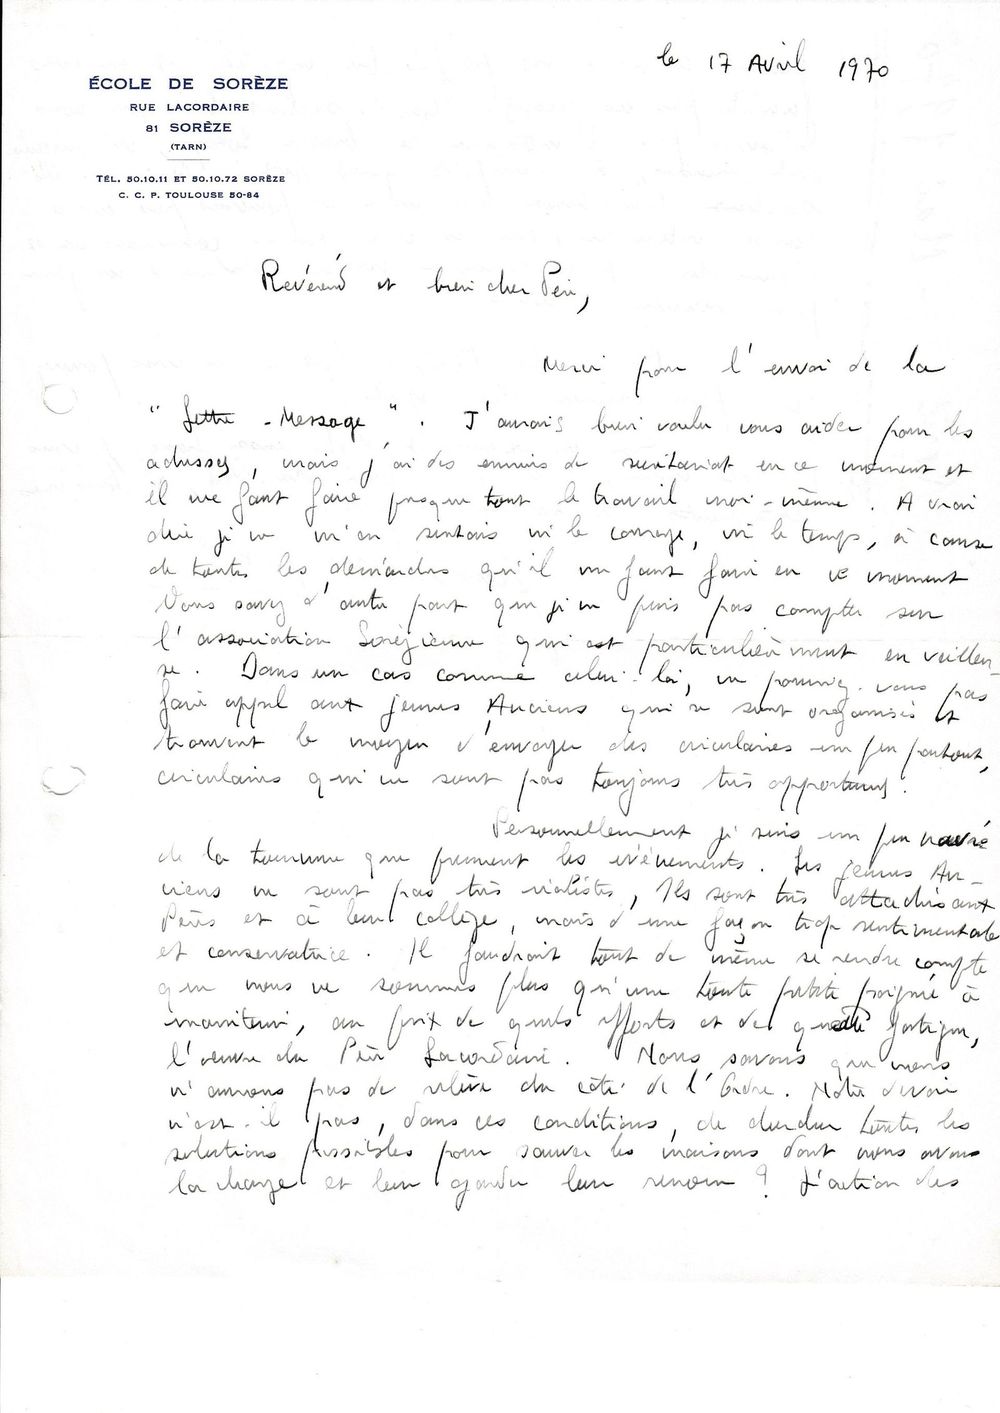 le 17 Avril 1970
ÉCOLE DE SORÈZE
RUE LACORDAIRE
81 SORÈZE
(TARN)
TÉL. 50.10.11 ET 50.10.72 SORÈZE
C. C. P. TOULOUSE 50-84
Révérend et bien cher Père,
Merci pour l'envoi de la
" Lettre - Message ". J'aurais bien voulu vous aider pour les
adresses, mais j'ai des ennuis de secrétariat en ce moment et
il me faut faire presque tout le travail moi-même. A vrai
dire je ne m'en sentais ni le courage, ni le temps, à cause
de toutes les démarches qu'il me faut faire en ce moment
Vous savez d'autre part que je ne puis pas compter sur
l'association Sorézienne qui est particulièrement en veilleu-
se. Dans un cas comme celui-là, ne pourriez-vous pas
faire appel aux jeunes Anciens qui se sont organisés et
trouvent le moyen d'envoyer des circulaires un peu partout,
circulaires qui ne sont pas toujours très opportunes.
Personnellement je suis un peu navré
de la tournure que prennent les événements. Les jeunes An-
ciens ne sont pas très réalistes, Ils sont très attachés aux
Pères et à leur collège, mais d'une façon trop sentimentale
et conservatrice. Il faudrait tout de même se rendre compte
que nous ne sommes plus qu'une toute petite poignée à
maintenir, au prix de quels efforts et de quelle fatigue,
l'œuvre du Père Lacordaire. Nous savons que nous
n'aurons pas de relève du côté de l'Ordre. Notre devoir
n'est-il pas, dans ces conditions, de chercher toutes les
solutions possibles pour sauver les maisons dont nous avons
la charge et leur garder leur renom ? L'action des